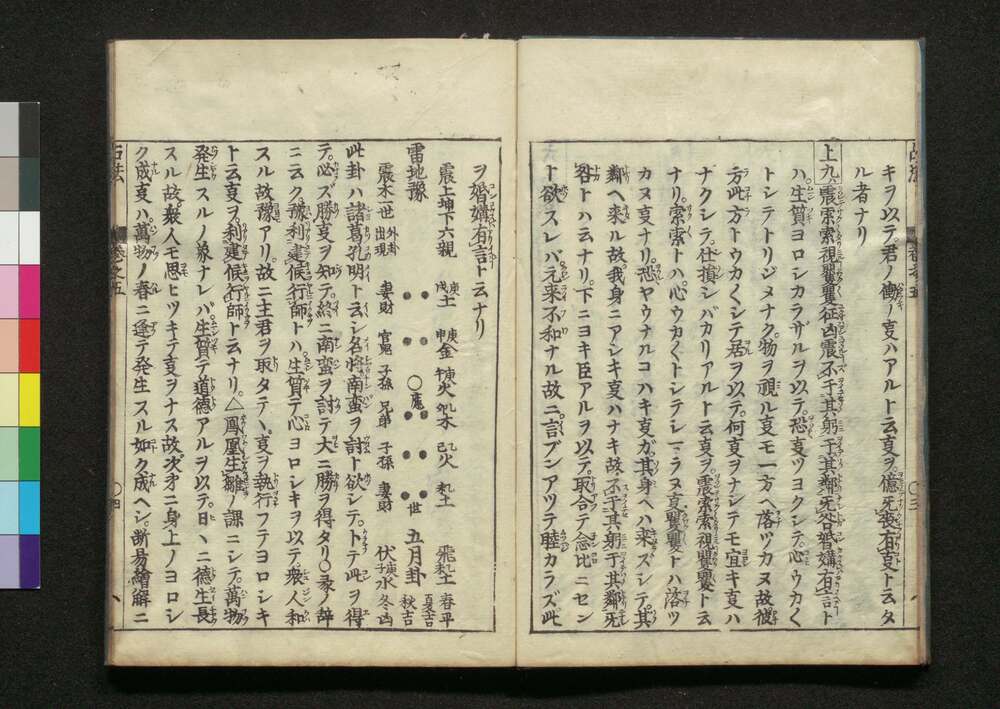 キヲ以テ君ノ働ノ㕝ハアルト云㕝ヲ億无喪有㕝ト云タ
ル者ナリ
上九震索索視矍矍征凶震不于其躬于其鄰无咎婚媾有言ト
ハ生質ヨロシカラザルヲ以テ恐㕝ツヨクシテ心ウカ〱
トシテトリジメナク物ヲ視ル㕝モ一方ヘ落ツカヌ故彼
方此方トウカ〱シテ居ヲ以テ何㕝ヲナシテモ宜キ㕝ハ
ナクシテ仕損シバカリアルト云㕝ヲ震索索視矍矍ト云
ナリ索索トハ心ウカ〱トシテシマラヌ㕝矍矍トハ落ツ
カヌ㕝ナリ恐ヤウナルコハキ㕝ガ其身ヘハ来ズシテ其
鄰ヘ来ル故我身ニアシキ㕝ハナキ故不于其躬于其鄰无
咎トハ云ナリ下ニヨキ臣アルヲ以テ取合テ念比ニセン
ト欲スレバ元来不和ナル故ニ言ブンアツテ睦カラズ此
ヲ婚媾有言ト云ナリ
震上坤下六親
戌庚土 申庚金 午庚火 卯乙木 巳乙火 未乙土
飛未乙土 春平 夏吉
雷地豫
〇鬼
世 五月卦
震木一世 外卦出現
妻財 官鬼 子孫 兄弟 子孫 妻財
伏子庚水 秋吉 冬凶
此卦ハ諸葛孔明ト云シ名将南蛮ヲ討ト欲シテトテ此ヲ得
テ必ズ勝㕝ヲ知テ終ニ南蛮ヲ討テ大ニ勝ヲ得タリ〇彖ノ辞
ニ云ク豫利建侯行師トハ生質テ心ヨロシキヲ以テ衆人和
スル故豫アリ故ニ主君ヲ取タテハ㕝ヲ執行フテヨロシキ
ト云㕝ヲ利建候行師ト云ナリ△鳳凰生雛ノ課ニシテ萬物
発生スルノ象ナレバ生質テ道徳アルヲ以テ日ヽニ德生長
スル故衆人モ思ヒツキテ㕝ヲナス故次㐧ニ身上ノヨロシ
ク成㕝ハ萬物ノ春ニ逢テ発生スル如ク成ヘシ断易繪解ニ
巻之五
〇四
〇三